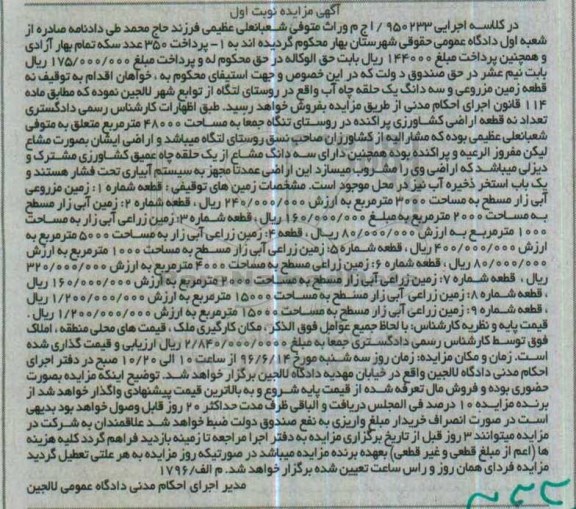 آگهی مزایده نوبت اول
در کلاسه اجرایی ۹۵۰۲۳۳ / اج م وراث متوفی شعبانعلی عظیمی فرزند حاج محمد طی دادنامه صادره از
شعبه اول دادگاه عمومی حقوقی شهرستان بهار محکوم گردیده اند به ۱- پرداخت ۳۵۰ عدد سکه تمام بهار آزادی
و همچنین پرداخت مبلغ ۱۴۴۰۰۰ ریال بابت حق الوکاله در حق محکوم له و پرداخت مبلغ ۱۷۵/۰۰۰/۰۰۰ ریال
بابت نیم عشر در حق صندوق دولت که در این خصوص و جهت استیفای محکوم به ، خواهان اقدام به توقیف نه
قطعه زمین مزروعی و سه دانگ یک حلقه چاه آب واقع در روستای لتگاه از توابع شهر لالجین نموده که مطابق ماده
۱۱۴ قانون اجرای احکام مدنی از طریق مزایده بفروش خواهد رسید. طبق اظهارات کارشناس رسمی دادگستری
تعداد نه قطعه اراضی کشاورزی پراکنده در روستای تنگاه جمعا به مساحت ۴۸۰۰۰ مترمربع متعلق به متوفی
شعبانعلی عظیمی بوده که مشارالیه از کشاورزان صاحب نسق روستای لتگاه میباشد و اراضی ایشان بصورت مشاع
لیکن مفروز الرعیه و پراکنده بوده همچنین دارای سه دانگ مشاع از یک حلقه چاه عمیق کشاورزی مشترک و
دیزلی میباشد که اراضی وی را مشروب میسازد این اراضی عمدتا مجهز به سیستم آبیاری تحت فشار هستند و
یک باب استخر ذخیره آب نیز در محل موجود است. مشخصات زمین های توقیفی : قطعه شماره ۱: زمین مزروعی
آبی زار مسطح به مساحت ۳۰۰۰ مترمربع به ارزش ۲۴۰/۰۰۰/۰۰۰ ریال ، قطعه شماره ۲: زمین آبی زار مسطح
به مساحت ۲۰۰۰ مترمربع به مبلغ ۱۶۰/۰۰۰/۰۰۰ ریال ، قطعه شماره ۳: زمین زراعی آبی زار به مساحت
۱۰۰۰ مترمربع به ارزش ۸۰/۰۰۰/۰۰۰ ریال ، قطعه ۴: زمین زراعی آبی زار به مساحت ۵۰۰۰ مترمربع به
ارزش ۴۰۰/۰۰۰/۰۰۰ ریال ، قطعه شماره ۵: زمین زراعی آبی زار مسطح به مساحت ۱۰۰۰ مترمربع به ارزش
۸۰/۰۰۰/۰۰۰ ریال ، قطعه شماره ۶: زمین زراعی مسطح به مساحت ۴۰۰۰ مترمربع به ارزش ۳۲۰/۰۰۰/۰۰۰
ریال ، قطعه شماره ۷: زمین زراعی آبی زار مسطح به مساحت ۲۰۰۰ مترمربع به ارزش ۱۶۰/۰۰۰/۰۰۰ ریال
، قطعه شماره ۸: زمین زراعی آبی زار مسطح به مساحت ۱۵۰۰۰ مترمربع به ارزش ۱/۲۰۰/۰۰۰/۰۰۰ ریال
، قطعه شماره ۹: زمین زراعی آبی زار مسطح به مساحت ۱۵۰۰۰ مترمربع به ارزش ۱/۲۰۰/۰۰۰/۰۰۰ ریال .
قیمت پایه و نظریه کارشناس: با لحاظ جمیع عوامل فوق الذکر ، مکان کارگیری ملک ، قیمت های محلی منطقه ، املاک
فوق توسط کارشناس رسمی دادگستری جمعا به مبلغ ۲/۸۴۰/۰۰۰/۰۰۰ ریال ارزیابی و قیمت گذاری شده
است. زمان و مکان مزایده: زمان روز سه شنبه مورخ ۹۶/۶/۱۴ از ساعت ۱۰ الی ۱۰/۲۰ صبح در دفتر اجرای
احکام مدنی دادگاه لالجین واقع در خیابان مهدیه دادگاه لالجین برگزار خواهد شد. توضیح اینکه مزایده بصورت
حضوری بوده و فروش مال تعرفه شده از قیمت پایه شروع و به بالاترین قیمت پیشنهادی واگذار خواهد شد از
برنده مزایده ۱۰ درصد فی المجلس دریافت و الباقی ظرف مدت حداکثر ۲۰ روز قابل وصول خواهد بود بدیهی
است در صورت انصراف خریدار مبلغ واریزی به نفع صندوق دولت ضبط خواهد شد علاقمندان به شرکت در
مزایده میتوانند ۳ روز قبل از تاریخ برگزاری مزایده به دفتر اجرا مراجعه تا زمینه بازدید فراهم گردد کلیه هزینه
ها (اعم از مبلغ قطعی و غیر قطعی) بعهده برنده مزایده میباشد در صورتیکه روز مزایده به هر علتی تعطیل گردید
مزایده فردای همان روز و راس ساعت تعیین شده برگزار خواهد شد. م الف/۱۷۹۶
مدیر اجرای احکام مدنی دادگاه عمومی لالجین